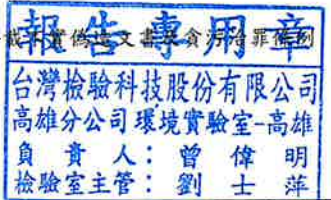 報告專用章
載不實偽造文書及貪污治罪條例
台灣檢驗科技股份有限公司
高雄分公司環境實驗室-高雄
負責人：曾偉明
檢驗室主管：劉士萍